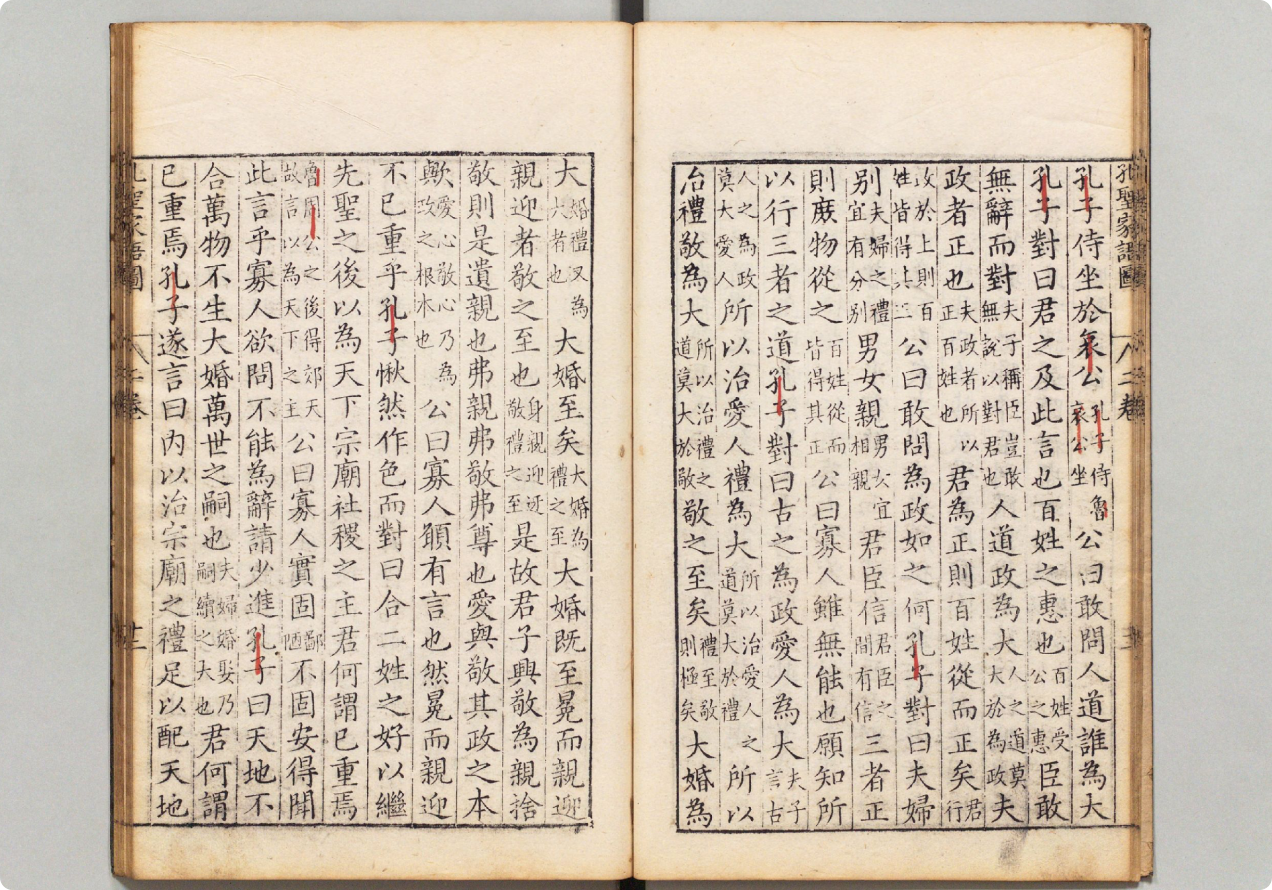 孔聖家語圖 八二卷
孔子侍坐於哀公孔子侍魯哀公坐公曰敢問人道誰為大
孔子對曰君之及此言也百姓之惠也百姓受公之惠臣敢
無辭而對夫子稱臣豈敢無說以對君也人道政為大人之道莫大於為政夫
政者正也夫政者所以正百姓也君為正則百姓從而正矣君行
政於上則百姓皆得其正公曰敢問為政如之何孔子對曰夫婦
別夫婦之禮宜有分別男女親男女宜相親君臣信君臣之間有信三者正
則庶物從之百姓從而皆得其正公曰寡人雖無能也願知所
以行三者之道孔子對曰古之為政愛人為大夫子言古
人之為政莫大愛人所以治愛人禮為大所以治愛人之道莫大於禮所以
治禮敬為大所以治禮之道莫大於敬敬之至矣禮至敬則極矣大婚為
大婚禮又為大者也大婚至矣大婚為禮之至大婚既至冕而親迎
親迎者敬之至也身親迎迓敬禮之至是故君子興敬為親捨
敬則是遺親也弗親弗敬弗尊也愛與敬其政之本
歟愛心敬心乃為政之根本也公曰寡人願有言也然冕而親迎
不已重乎孔子愀然作色而對曰合二姓之好以繼
先聖之後以為天下宗廟社稷之主君何謂已重焉
魯周公之後得郊天故言以為天下之主公曰寡人實固鄙陋不固安得聞
此言乎寡人欲問不能為辭請少進孔子曰天地不
合萬物不生大婚萬世之嗣也夫婦婚娶乃嗣續之大也君何謂
已重焉孔子遂言曰內以治宗廟之禮足以配天地
孔聖家語圖 卷